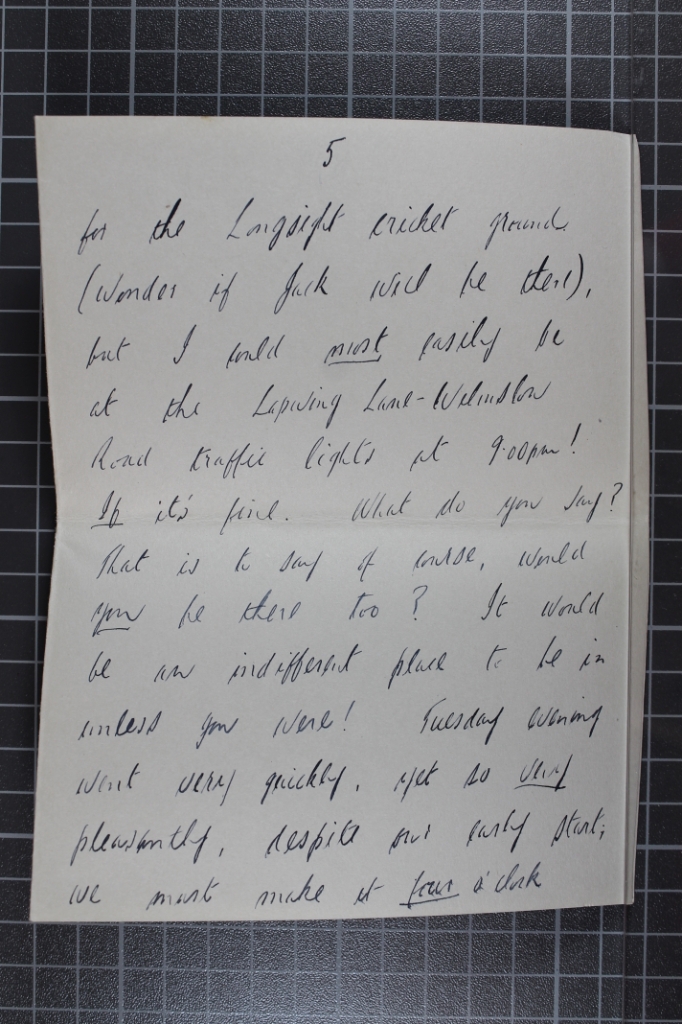 5
for the Longsight cricket ground
(Wonder if Jack will be there),
but I could most easily be
at the Lapwing Lane-Wilmslow
Road traffic lights at 9.00pm!
If it's fine. What do you say?
That is to say of course, would
you be there too? It would
be an indifferent place to be in
unless you were! Tuesday evening
went very quickly, yet so very
pleasantly, despite our early start;
we must make it four o'clock